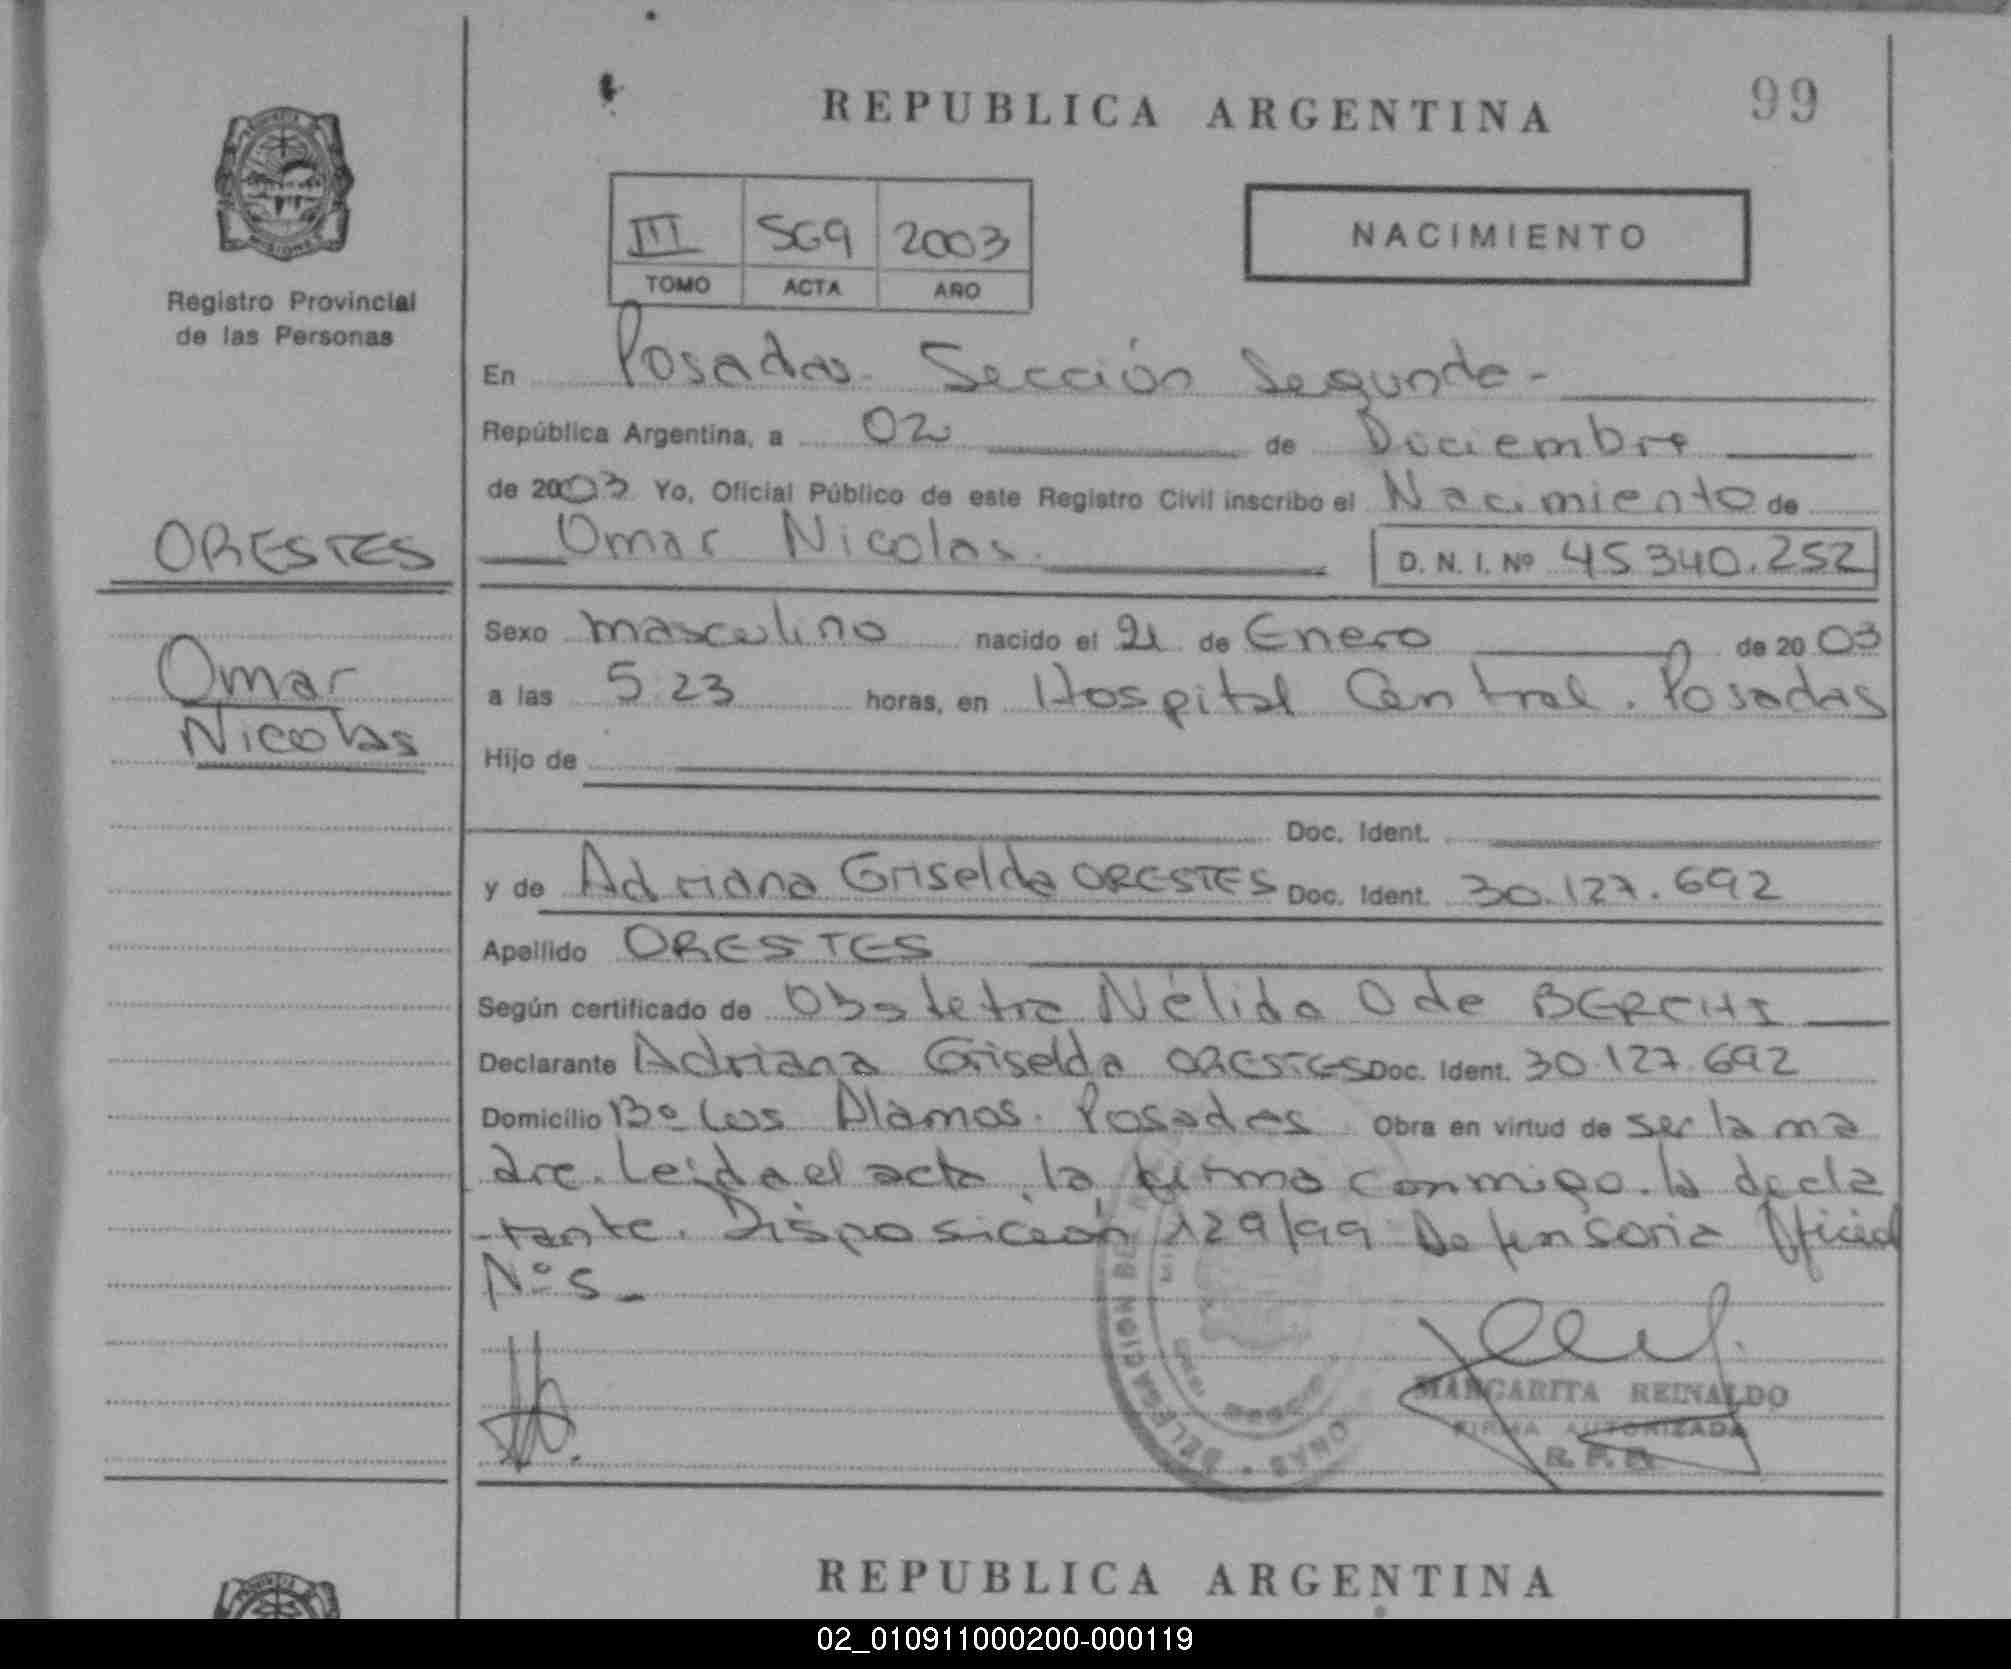 REPUBLICA ARGENTINA
99
Registro Provincial
de las Personas
III 569 2003
TOMO ACTA AÑO
NACIMIENTO
En Posadas. Sección Segunda-
República Argentina, a 02 de Diciembre
de 2003 Yo, Oficial Público de este Registro Civil inscribo el Nacimiento de
Omar Nicolas.
D. N. I. Nº 45.340.252
ORESTES
Omar
Nicolas
Sexo masculino nacido el 21 de Enero de 2003
a las 5.23 horas, en Hospital Central. Posadas
Hijo de
Doc. Ident.
y de Adriana Griselda ORESTES Doc. Ident. 30.127.692
Apellido ORESTES
Según certificado de Obstetra Nélida O de BERCHI
Declarante Adriana Griselda ORESTES Doc. Ident. 30.127.692
Domicilio Bº Los Alamos. Posadas Obra en virtud de ser la ma
dre. Leida el acta, la firma conmigo la decla
rante. Disposición 129/99 Defensoria Oficial
Nº 5-
MARGARITA REINALDO
FIRMA AUTORIZADA
R. P. P.
REPUBLICA ARGENTINA
02_010911000200-000119